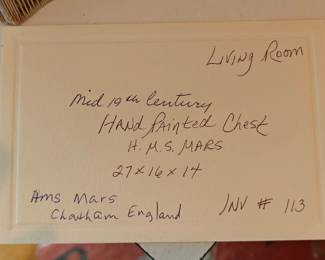 Living Room
Mid 19th Century
Hand Painted Chest
H.M.S. MARS
27 x 16 x 14
Ams Mars
Chatham England
INV # 113